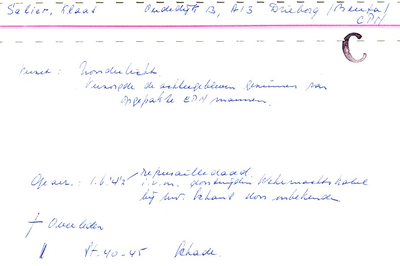 Salier, Klaas Oudedijk 13, A13 Drieborg (Beerta)
CPN
C
krant: Noorderlicht.
Verzorgde de achtergebleven gezinnen van
opgepakte CPN mannen.
Op aan: 1.6.'42 represailledaad
i.v.m. doorsnijden Wehrmachtskabel
bij door onbekenden
† Overleden
St. 40-45 Schade.